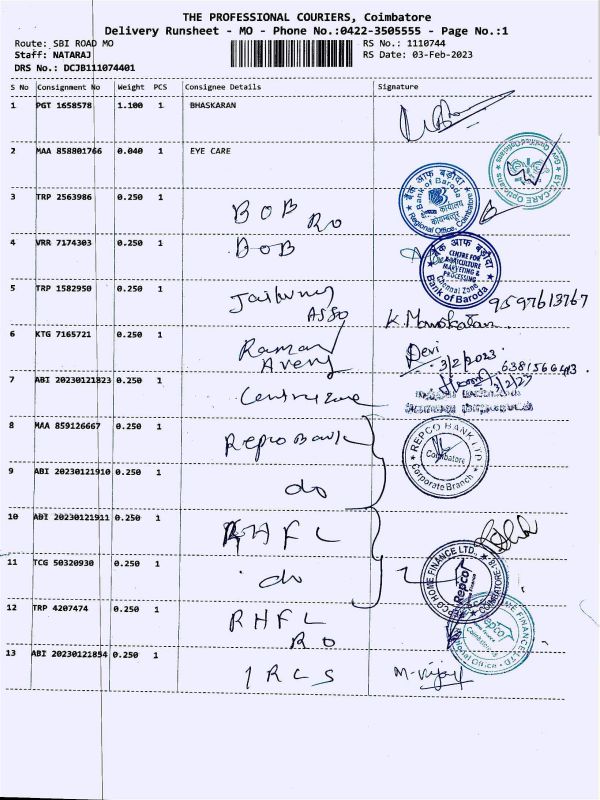 THE PROFESSIONAL COURIERS, Coimbatore
Delivery Runsheet - MO - Phone No.:0422-3505555 - Page No.:1
Route: SBI ROAD MO
RS No.: 1110744
Staff: NATARAJ
RS Date: 03-Feb-2023
DRS No.: DCJB111074401
S No Consignment No Weight PCS Consignee Details Signature
1 PGT 1658578 1.100 1 BHASKARAN
2 MAA 858801766 0.040 1 EYE CARE
EYE-CARE Opticians
3 TRP 2563986 0.250 1 BOB RO
बैंक ऑफ़ बड़ौदा
Bank of Baroda
Regional Office, Coimbatore
4 VRR 7174303 0.250 1 BOB
बैंक ऑफ़ बड़ौदा
CENTRE FOR
AGRICULTURE
MARKETING &
PROCESSING
Chennai Zone
Bank of Baroda
5 TRP 1582950 0.250 1
K. Manokaran 9597613767
6 KTG 7165721 0.250 1 Raman
Devi 3/2/2023
7 ABI 20230121823 0.250 1
3/2/23
8 MAA 859126667 0.250 1 Repco Bank
REPCO BANK LTD.
Coimbatore
Corporate Branch
9 ABI 20230121910 0.250 1 do
10 ABI 20230121911 0.250 1 RHFL
11 TCG 50320930 0.250 1 do
REPCO HOME FINANCE LTD.
Repco
COIMBATORE-18
12 TRP 4207474 0.250 1 RHFL
RO
13 ABI 20230121854 0.250 1 IRCS
M. Vijay